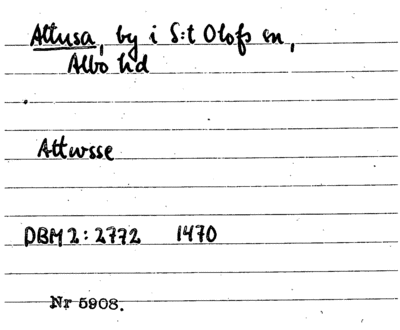 Altusa, by i S:t Olofs sn,
Albo hd
Attusse
DBM 2: 2772 1470
Nr 5908.